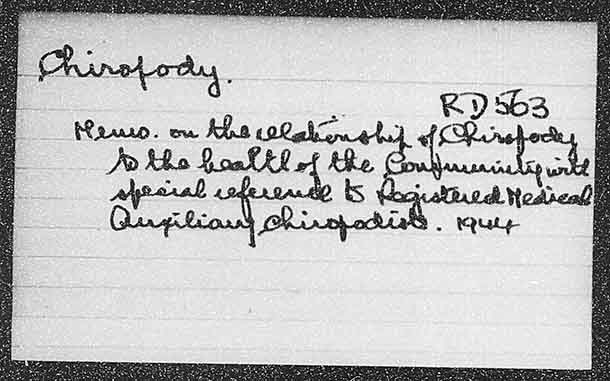 Chiropody.
RD 563
Memo. on the relationship of Chiropody
to the health of the Community with
special reference to Registered Medical
Auxiliary Chiropodists. 1944